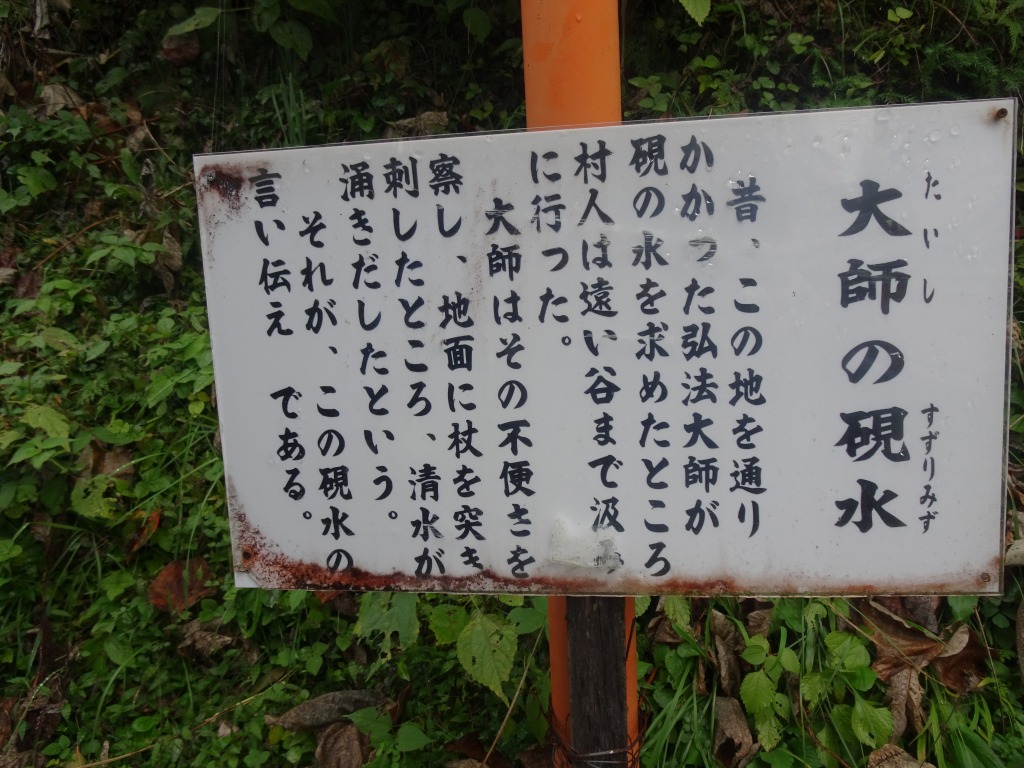 たいし すずりみず
大師の硯水
昔、この地を通り
かかった弘法大師が
硯の水を求めたところ
村人は遠い谷まで汲み
に行った。
大師はその不便さを
察し、地面に杖を突き
刺したところ、清水が
涌きだしたという。
それが、この硯水の
言い伝え である。